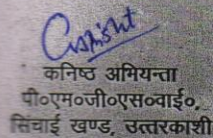 कनिष्ठ अभियन्ता
पी०एम०जी०एस०वाई०,
सिंचाई खण्ड, उत्तरकाशी